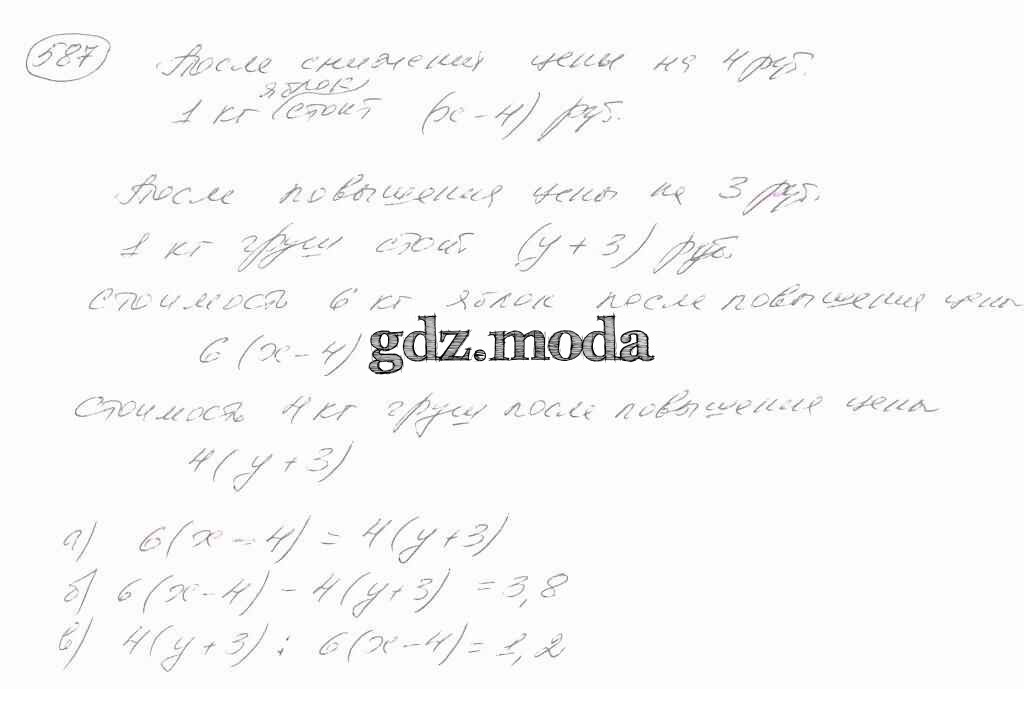 587
После снижения цены на 4 руб.
1 кг яблок стоит (x - 4) руб.
После повышения цены на 3 руб.
1 кг груш стоит (y + 3) руб.
стоимость 6 кг яблок после повышения цены
6 (x - 4)
gdz.moda
стоимость 4 кг груш после повышения цены
4 (y + 3)
а) 6(x - 4) = 4(y + 3)
б) 6(x - 4) - 4(y + 3) = 3,8
в) 4(y + 3) : 6(x - 4) = 1,2